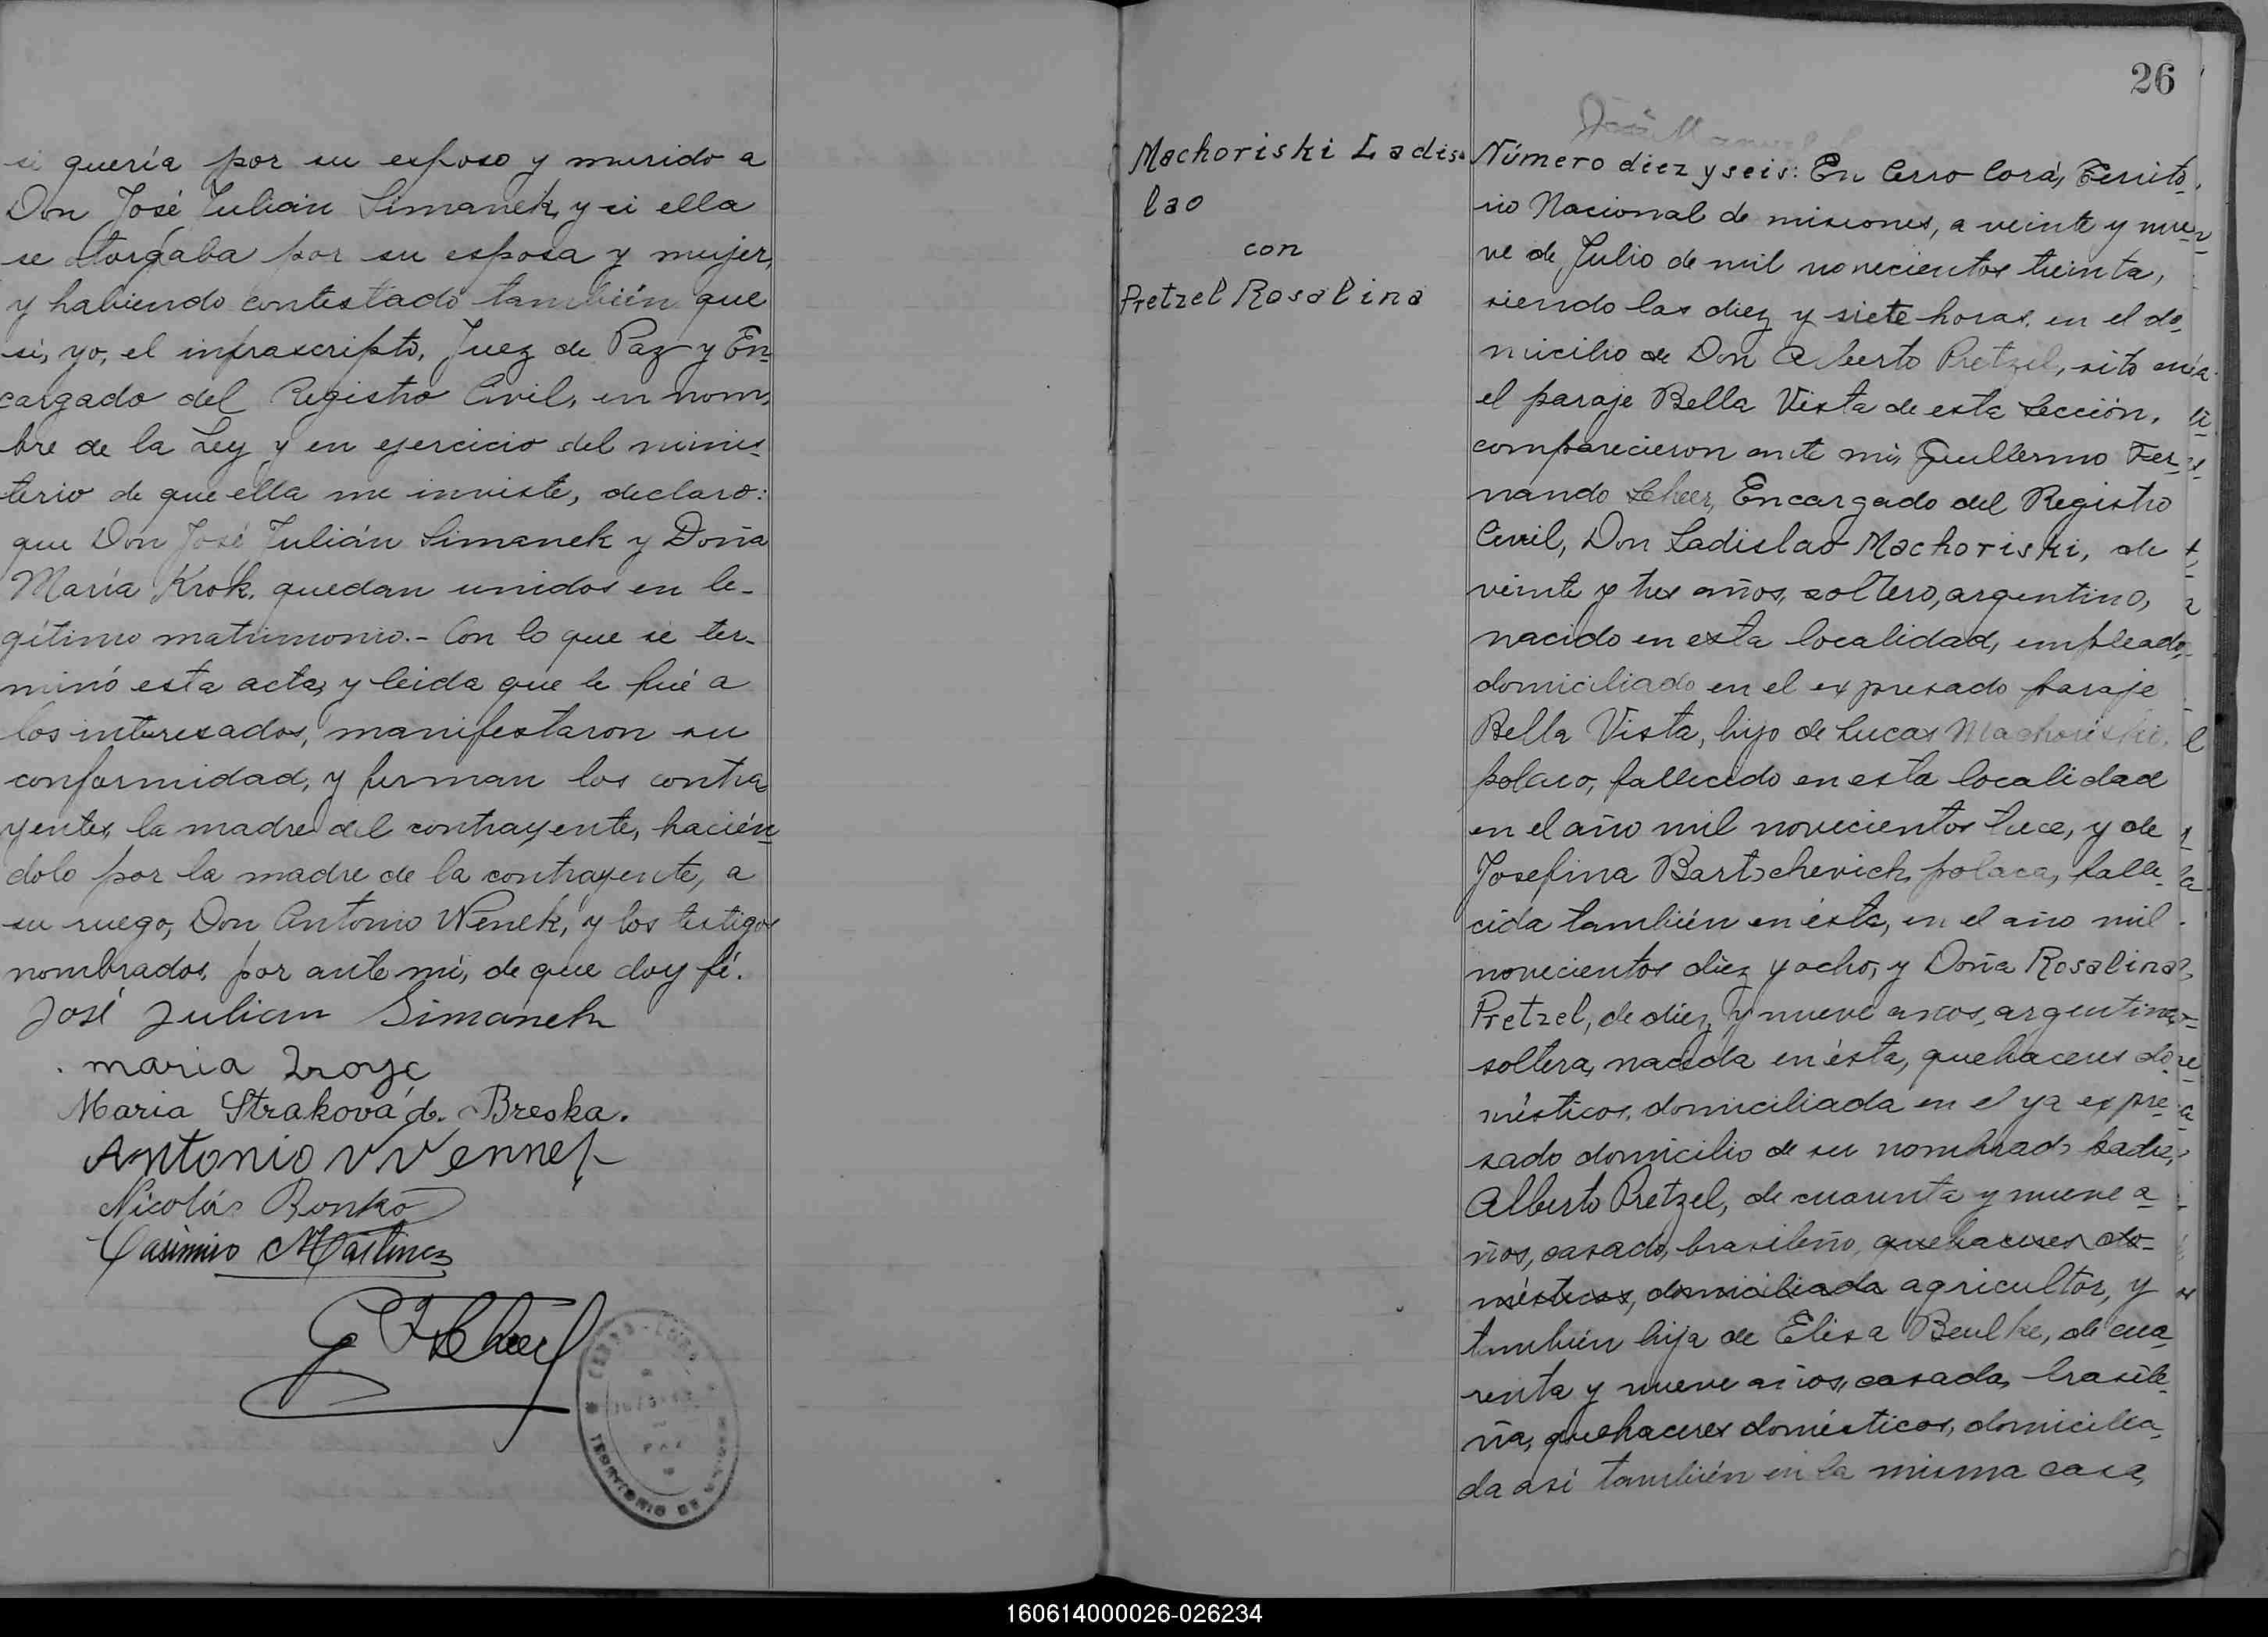 si quería por su esposo y murido a
Don José Julián Simanek, y si ella
se otorgaba por su esposa y mujer,
y habiendo contestado también que
sí, yo, el infrascripto, Juez de Paz y En-
cargado del Registro Civil, en nom-
bre de la Ley y en ejercicio del minis-
terio de que ella me inviste, declaro:
que Don José Julián Simanek y Doña
María Krok, quedan unidos en le-
gítimo matrimonio.- Con lo que se ter-
minó esta acta, y leida que le fué a
los interesados, manifestaron su
conformidad, y firman los contra-
yentes, la madre del contrayente, hacién-
dolo por la madre de la contrayente, a
su ruego, Don Antonio Wenek, y los testigos
nombrados, por ante mí, de que doy fé.
José Julian Simanek
maria
Maria Straková de Breska.
Antonio Wennek
Nicolás Ronko
Casimiro Martinez
G F Scheer
CERRO-CORÁ
PAZ
TERRITORIO DE
26
José Manuel
Machoriski Ladis-
lao
con
Pretzel Rosalina
Número diez y seis: En Cerro Corá, Territo-
rio Nacional de misiones, a veinte y nue-
ve de Julio de mil novecientos treinta,
siendo las diez y siete horas, en el do-
micilio de Don Alberto Pretzel, sito en
el paraje Bella Vista de esta Sección,
comparecieron ante mí, Guillermo Fer-
nando Scheer, Encargado del Registro
Civil, Don Ladislao Machoriski, de
veinte y tres años, soltero, argentino,
nacido en esta localidad, empleado,
domiciliado en el expresado paraje
Bella Vista, hijo de Lucas Machoriski,
polaco, fallecido en esta localidad
en el año mil novecientos trece, y de
Josefina Bartschevich, polaca, falle-
cida también en ésta, en el año mil
novecientos diez y ocho, y Doña Rosalina
Pretzel, de diez y nueve años, argentina,
soltera, nacida en ésta, quehaceres do-
mésticos, domiciliada en el ya expre-
sado domicilio de su nombrado padre,
Alberto Pretzel, de cuarenta y nueve a-
ños, casado, brasileño, quehaceres do-
mésticos, domiciliada agricultor, y
también hija de Elisa Beulke, de cua-
renta y nueve años, casada, brasile-
ña, quehaceres domésticos, domicilia-
da así también en la misma casa,
160614000026-026234